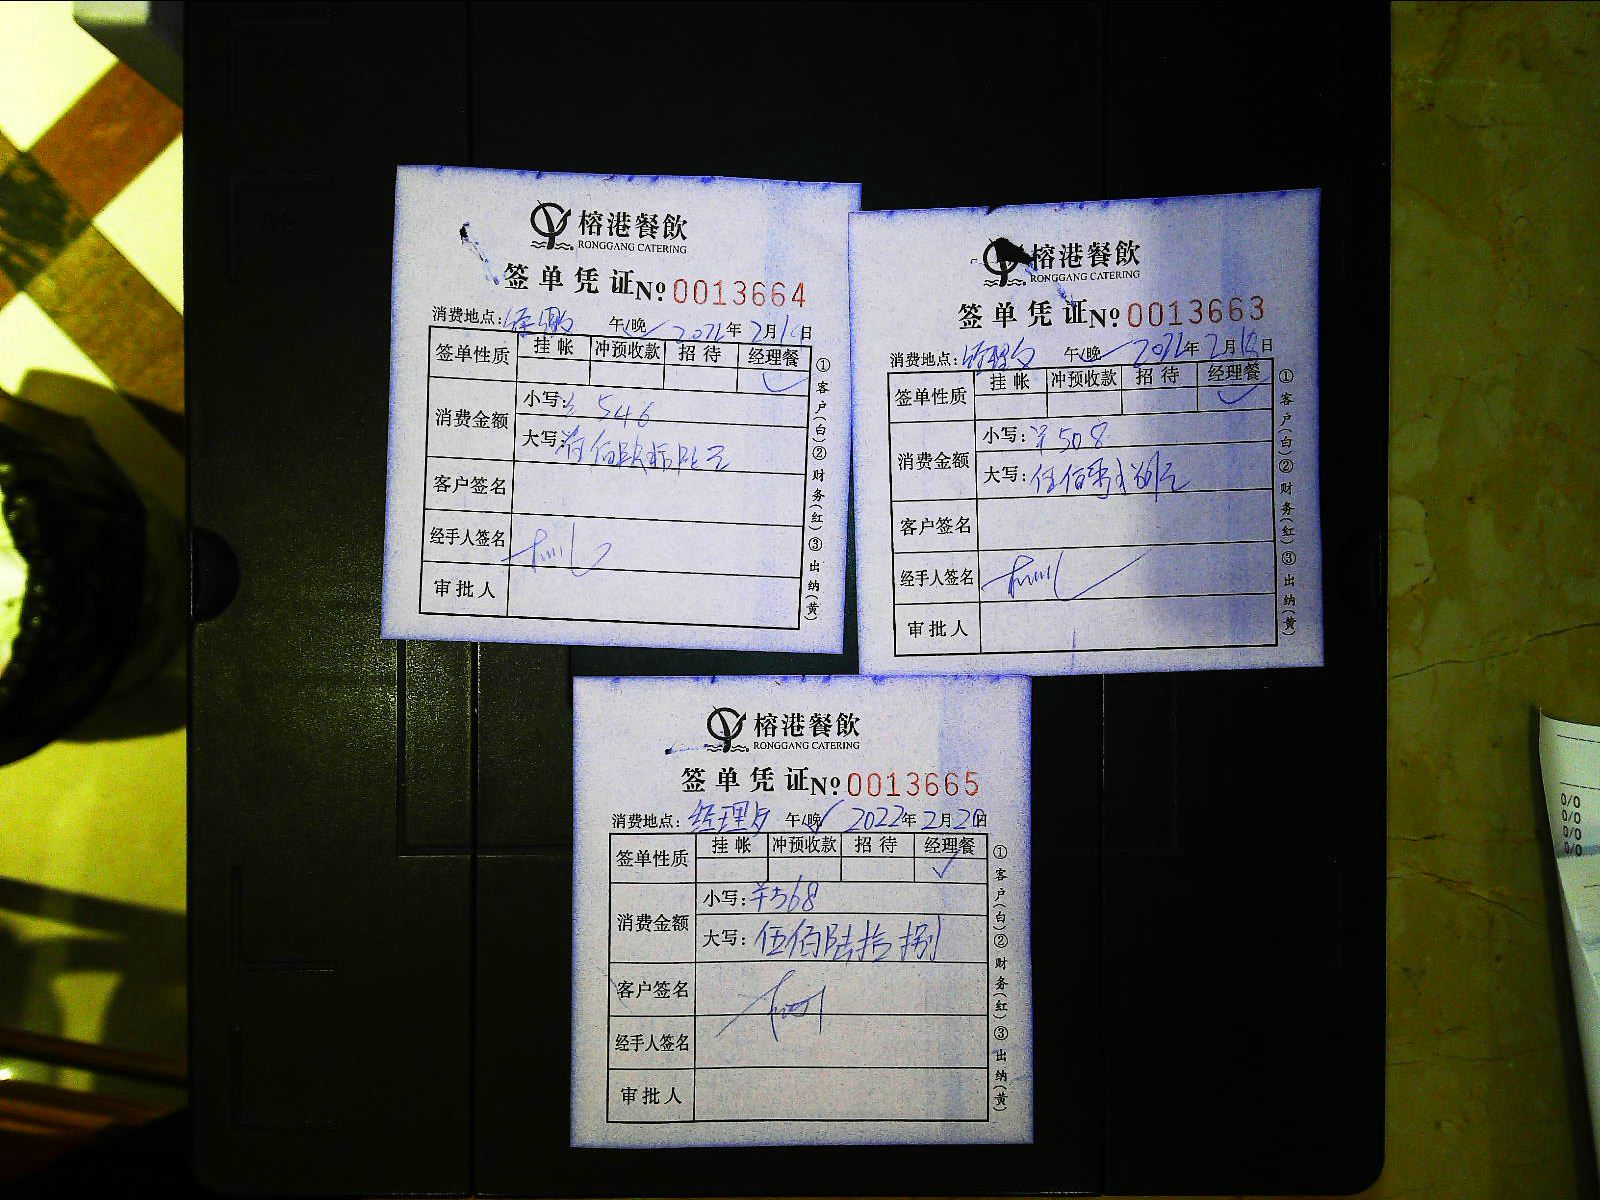 榕港餐飲
RONGGANG CATERING
签单凭证№ 0013664
消费地点: 午/晚 年2月 日
签单性质 挂帐 冲预收款 招待 经理餐
消费金额
小写: 546
大写: 佰 元
客户签名
经手人签名
审批人
①客户(白)②财务(红)③出纳(黄)
榕港餐飲
RONGGANG CATERING
签单凭证№ 0013663
消费地点: 午/晚 年2月 日
签单性质 挂帐 冲预收款 招待 经理餐
消费金额
小写:¥508
大写:伍佰零 捌元
客户签名
经手人签名
审批人
①客户(白)②财务(红)③出纳(黄)
榕港餐飲
RONGGANG CATERING
签单凭证№ 0013665
消费地点:经理 午/晚 2022年2月20日
签单性质 挂帐 冲预收款 招待 经理餐
消费金额
小写:¥568
大写:伍佰陆拾捌
客户签名
经手人签名
审批人
①客户(白)②财务(红)③出纳(黄)
0/0
0/0
0/0
0/0